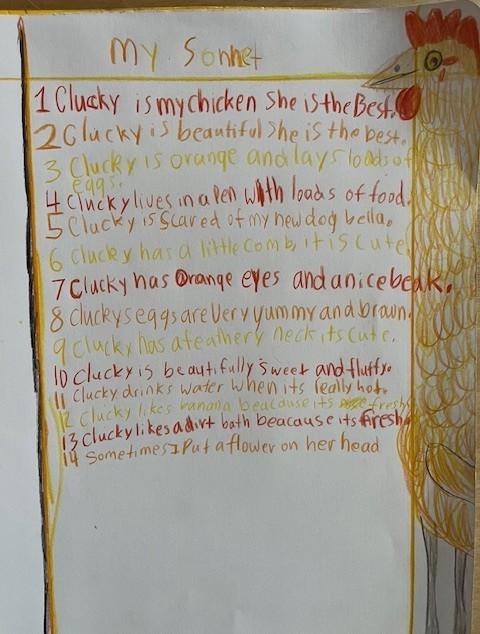 My Sonnet
1 Clucky is my chicken She is the Best.
2 Clucky is beautiful She is the best.
3 Clucky is orange and lays loads of
eggs.
4 Clucky lives in a Pen with loads of food.
5 Clucky is Scared of my new dog bella.
6 Clucky has a little comb it is cute
7 Clucky has Orange eyes and a nice beak.
8 cluckys eggs are Very yummy and brown.
9 Clucky has a feathery neck its cute.
10 Clucky is beautifully sweet and fluffy.
11 Clucky drinks water when its really hot.
12 Clucky likes banana beacause its fresh
13 Clucky likes a dirt bath beacause its fresh
14 Sometimes I Put a flower on her head